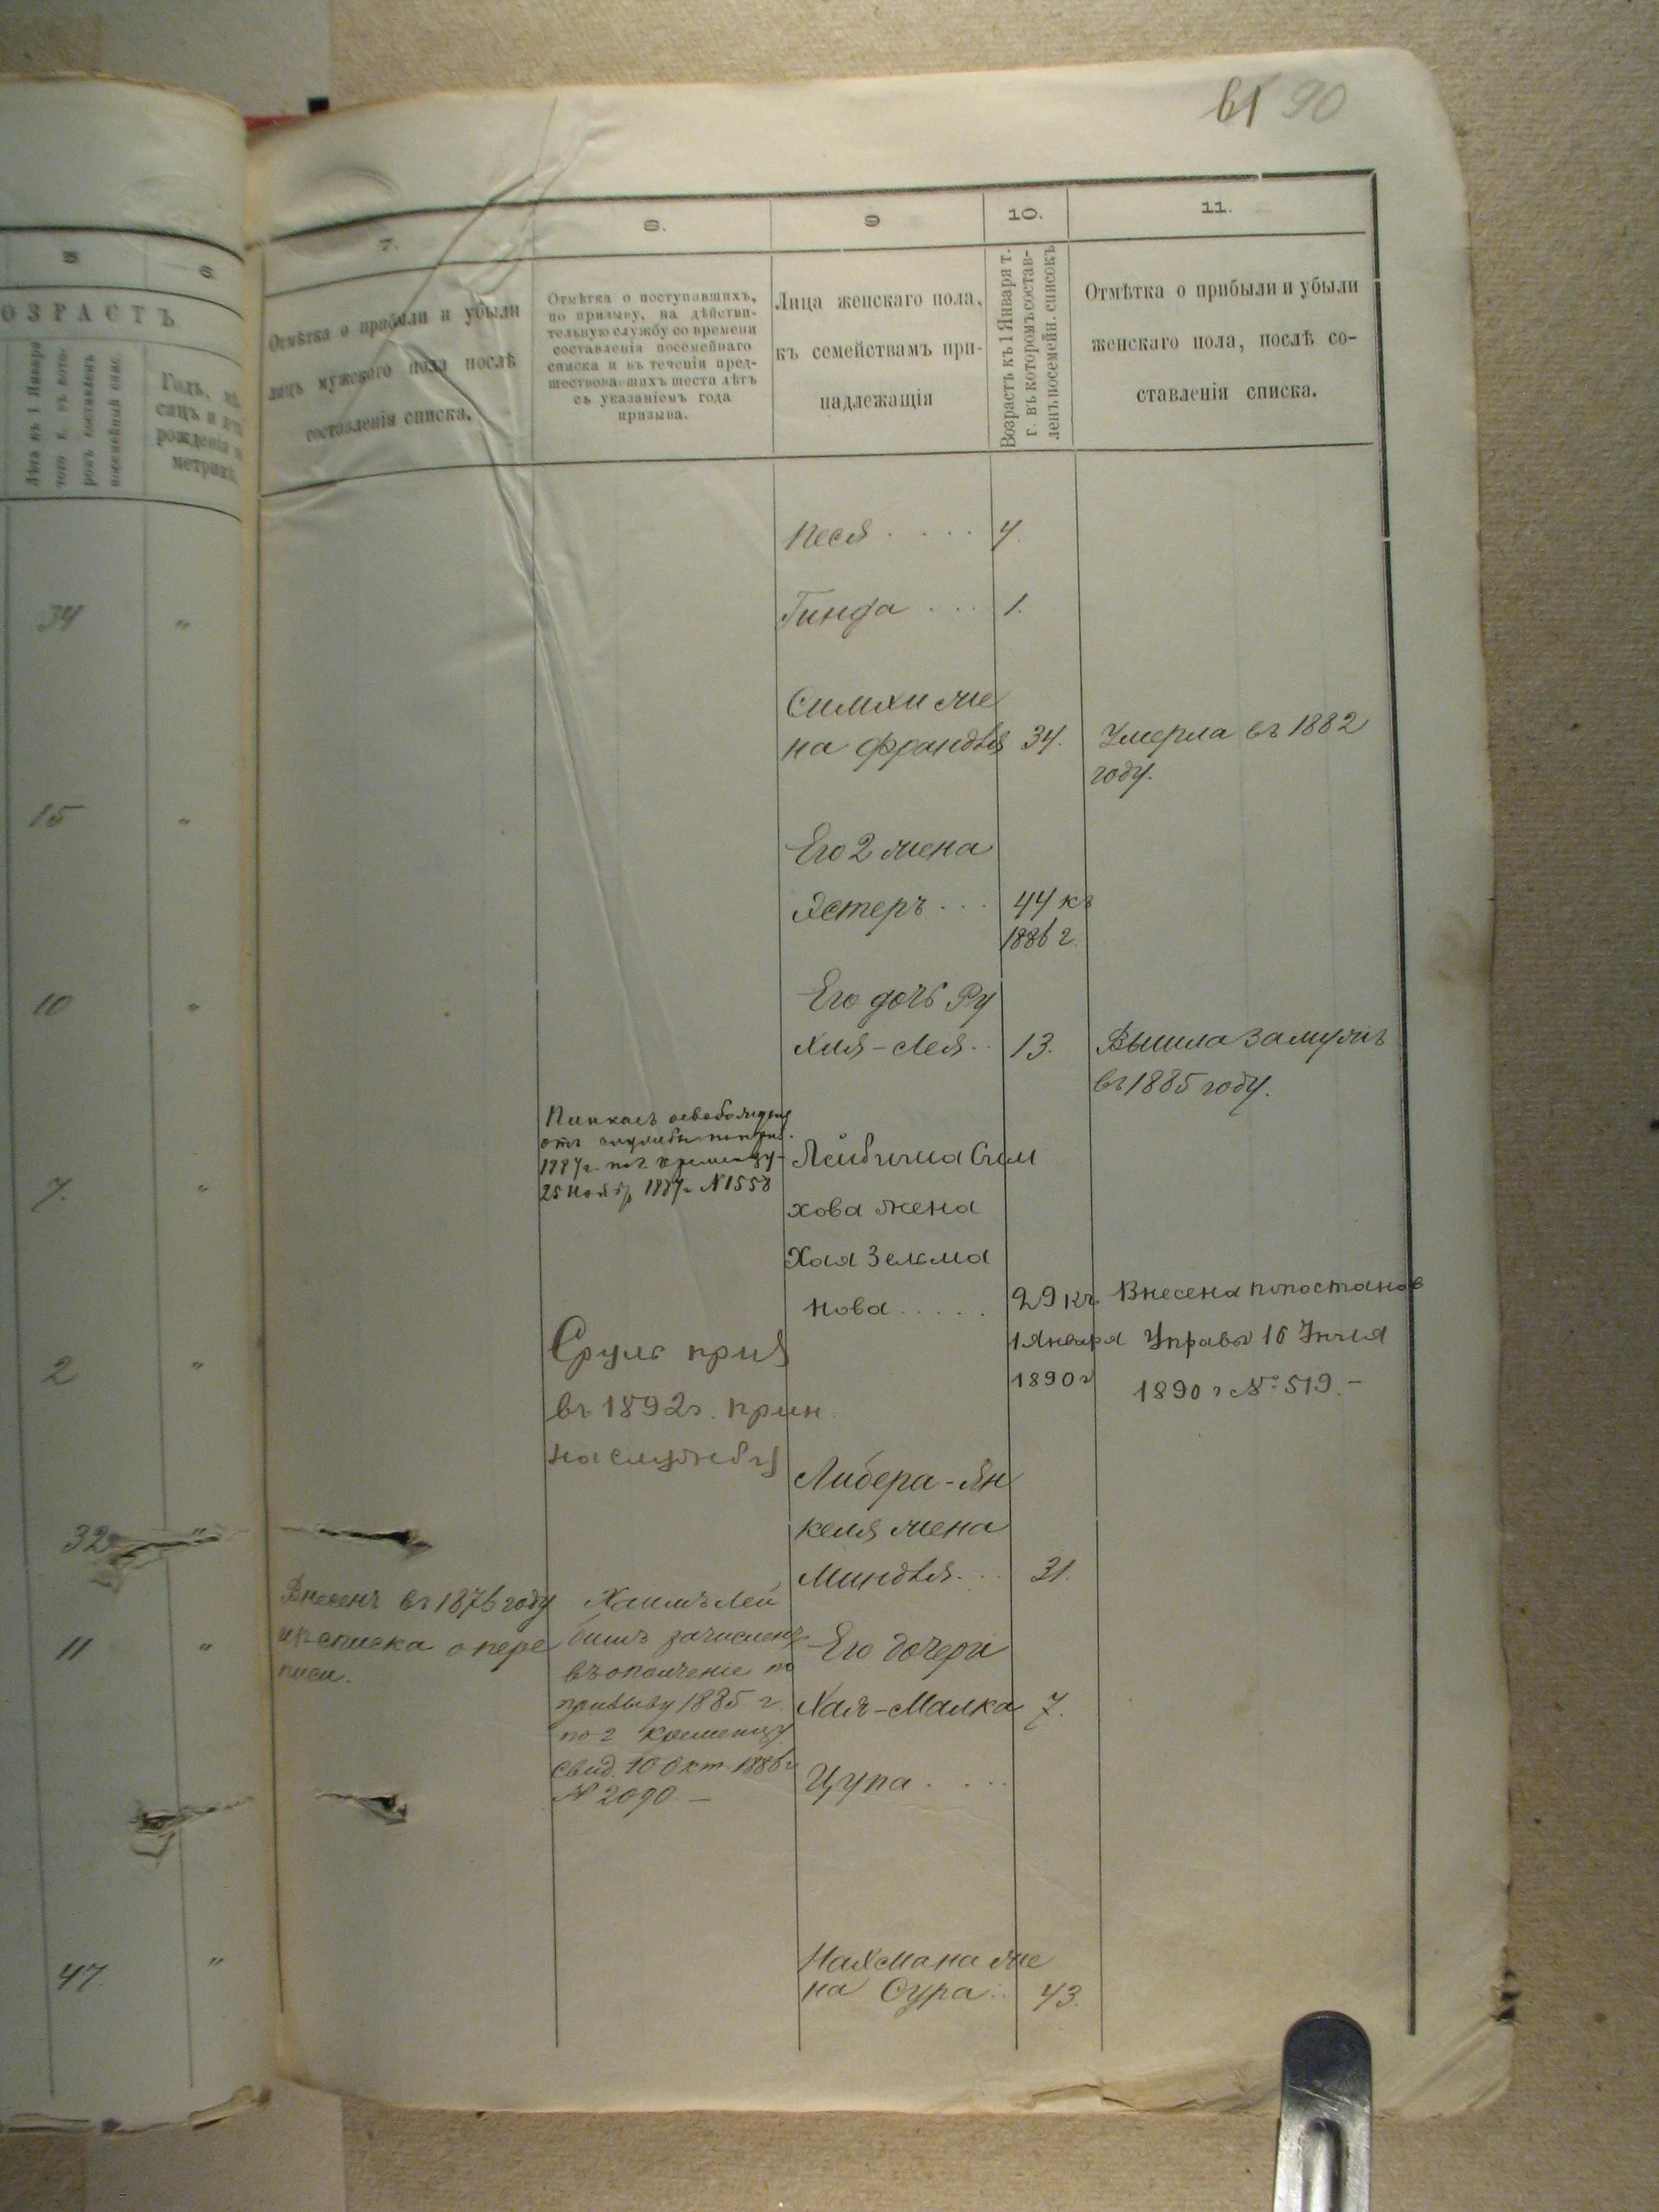 61 90
5
6
ОЗРАСТЪ
Лѣта къ 1 Января
того г. въ кото-
ромъ составленъ
посемейный спис.
Годъ, мѣ-
сяцъ и д
рожденія
метрик
34 "
15 "
10 "
7. "
2 "
32 "
11 "
47. "
7.
8.
9
10.
11.
Отмѣтка о прибыли и убыли
лицъ мужского пола послѣ
составленія списка.
Отмѣтка о поступившихъ,
по призыву, на дѣйстви-
тельную службу со времени
составленія посемейнаго
списка и въ теченіи пред-
шествовавшихъ шести лѣтъ
съ указаніемъ года
призыва.
Лица женскаго пола,
къ семействамъ при-
надлежащія
Возрастъ къ 1 Января т.
г. въ которомъ состав-
ленъ посемейн. списокъ
Отмѣтка о прибыли и убыли
женскаго пола, послѣ со-
ставленія списка.
Песя . . . . 4.
Гинда . . . 1.
Симхи же
на Франдля 34. Умерла въ 1882
году.
Его 2 жена
Эстеръ . . . 44 къ
1886 г.
Его дочь Ру
хля-Лея . . 13. Вышла замужъ
въ 1885 году.
Пинкасъ освобожденъ
отъ службы по приз.
1887 г. по г. Кременцу-
25 Нояб. 1887 г. № 1558
Лейбиша Сим
хова жена
Хая Зельма
нова . . . . . 29 къ Внесена по постанов
1 Января Управы 16 Іюля
1890 г 1890 г № 519.-
Сруль приз
въ 1892 г. прин.
на службу
Либера-Ян
келя жена
Миндля . . . 31.
Внесенъ въ 1876 году
изъ списка о пере
писи.
Хаимъ Лей
бишъ зачисленъ
въ ополченіе по
призыву 1885 г.
по г. Кременцу
свид. 10 Окт. 1886 г
№ 2090 —
Его дочери
Хая-Малка 7.
Цупа . . . .
Нахмана же
на Сура . . 43.